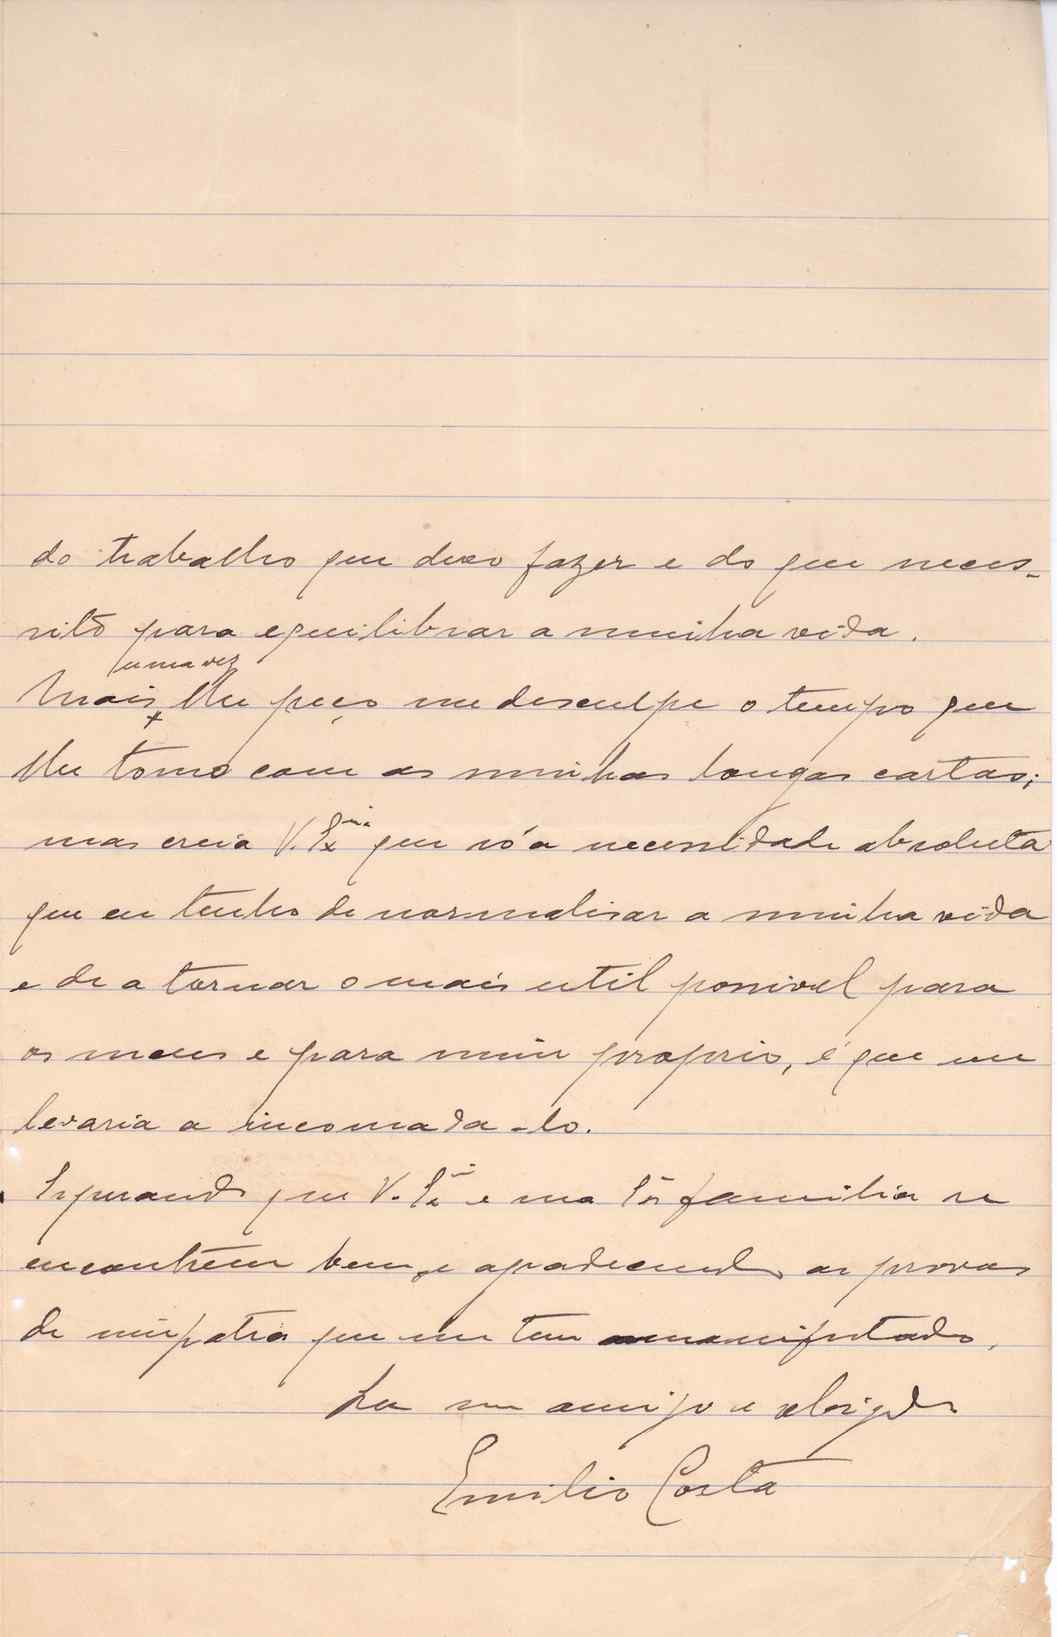 do trabalho que devo fazer e do que neces-
sito para equilibrar a minha vida.
uma vez
Mais + lhe peço me desculpe o tempo que
lhe tomo com as minhas longas cartas;
mas creia V. Exma que só a necessidade absoluta
que eu tenho de normalisar a minha vida
e de a tornar o mais util possivel para
os meus e para mim proprio, é que me
levaria a incomoda-lo.
Esperando que V. Exa e sua Exa familia se
encontrem bem, e agradecendo as provas
de simpatia que me tem manifestado,
seu amigo e obrigado
Emilio Costa